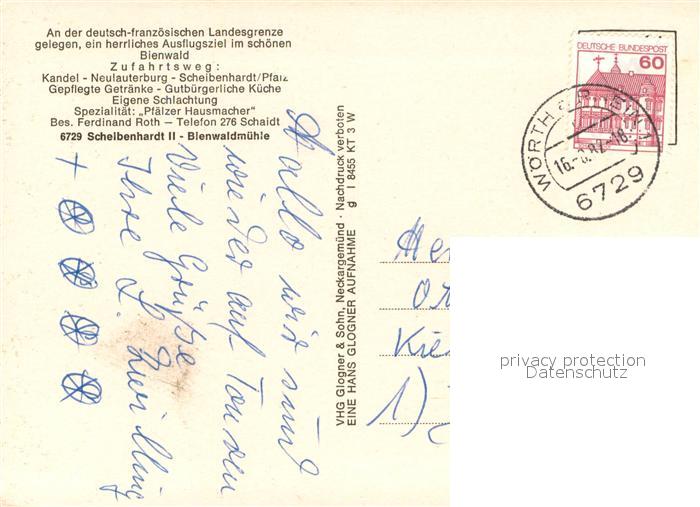 An der deutsch-französischen Landesgrenze
gelegen, ein herrliches Ausflugsziel im schönen
Bienwald
Zufahrtsweg:
Kandel - Neulauterburg - Scheibenhardt/Pfalz
Gepflegte Getränke - Gutbürgerliche Küche
Eigene Schlachtung
Spezialität: „Pfälzer Hausmacher"
Bes. Ferdinand Roth — Telefon 276 Schaidt
6729 Scheibenhardt II - Bienwaldmühle
Hallo wir sind
wieder auf Touren
Viele Grüße
Ihre L. Zwilling
VHG Glogner & Sohn, Neckargemünd · Nachdruck verboten
EINE HANS GLOGNER AUFNAHME g I 8455 KT 3 W
DEUTSCHE BUNDESPOST
60
WÖRTH
6729
Kie
1)
privacy protection
Datenschutz